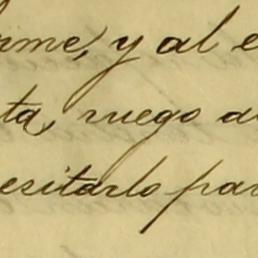 rme, y al e
ta, ruego a
esitarlo par